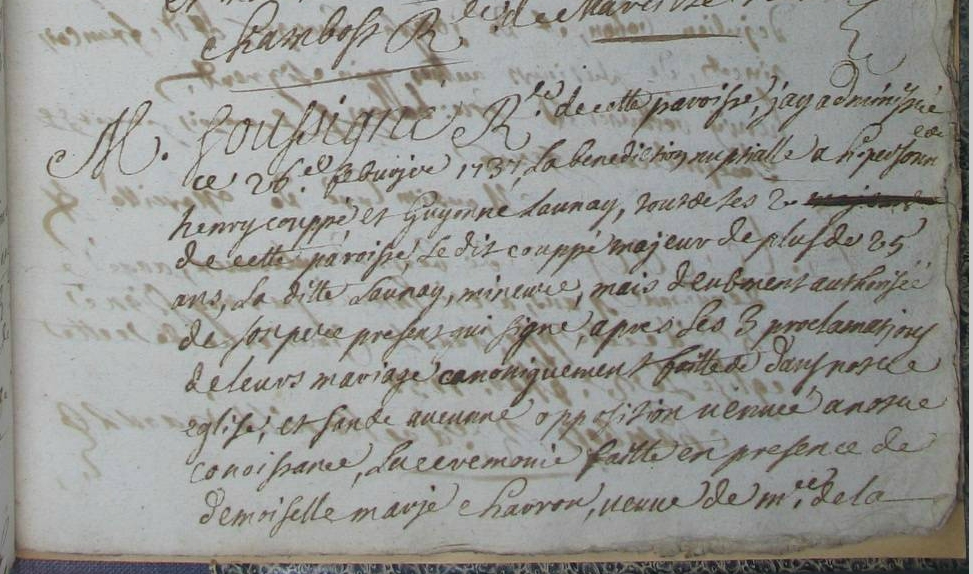 Chamboss R
M. soussigné R. de cette paroisse, jay administré
ce 26 1737, La benediction nuptialle a h. personnes
henry couppé, et Guyonne Launay, tous de les 2
de cette paroisse, Le dit couppé majeur de plus de 25
ans, La ditte Launay, mineure, mais deubment authorisée
de son pere present qui signe, apres les 3 proclamations
de leurs mariage canoniquement faitte de dans nostre
eglise, et sande aucunne opposition venuë a nostre
conoissance, La ceremonie faitte en presence de
demoiselle marie Charron, veuve de m. de la